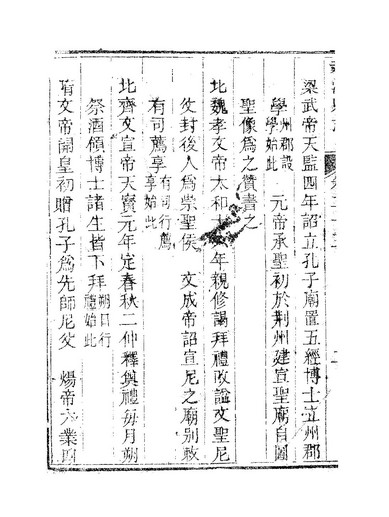 梁武帝天監四年詔立孔子廟置五經博士立州郡
學州郡設學始此 元帝承聖初於荆州建宣聖廟自圖
聖像爲之贊書之
北魏孝文帝太和十 年親修謁拜禮改謚文聖尼
父封後人爲崇聖侯 文成帝詔宣尼之廟别敕
有司薦享有司行薦享始此
北齊文宣帝天寶元年定春秋二仲釋奠禮每月朔
祭酒領博士諸生皆下拜朔日行禮始此
隋文帝開皇初贈孔子爲先師尼父 煬帝大業四